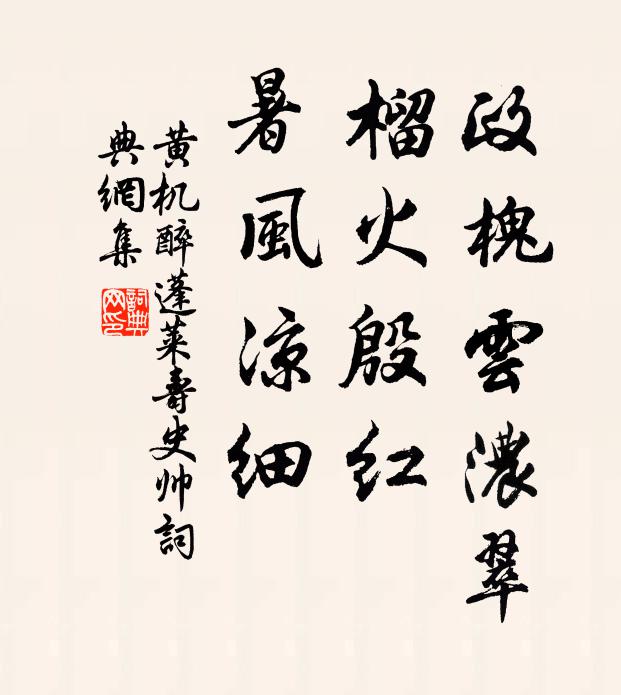 政槐雲濃翠
榴火殷紅
暑風涼細
黃机醉蓬萊壽史帅詞
典網集
詞典
网印